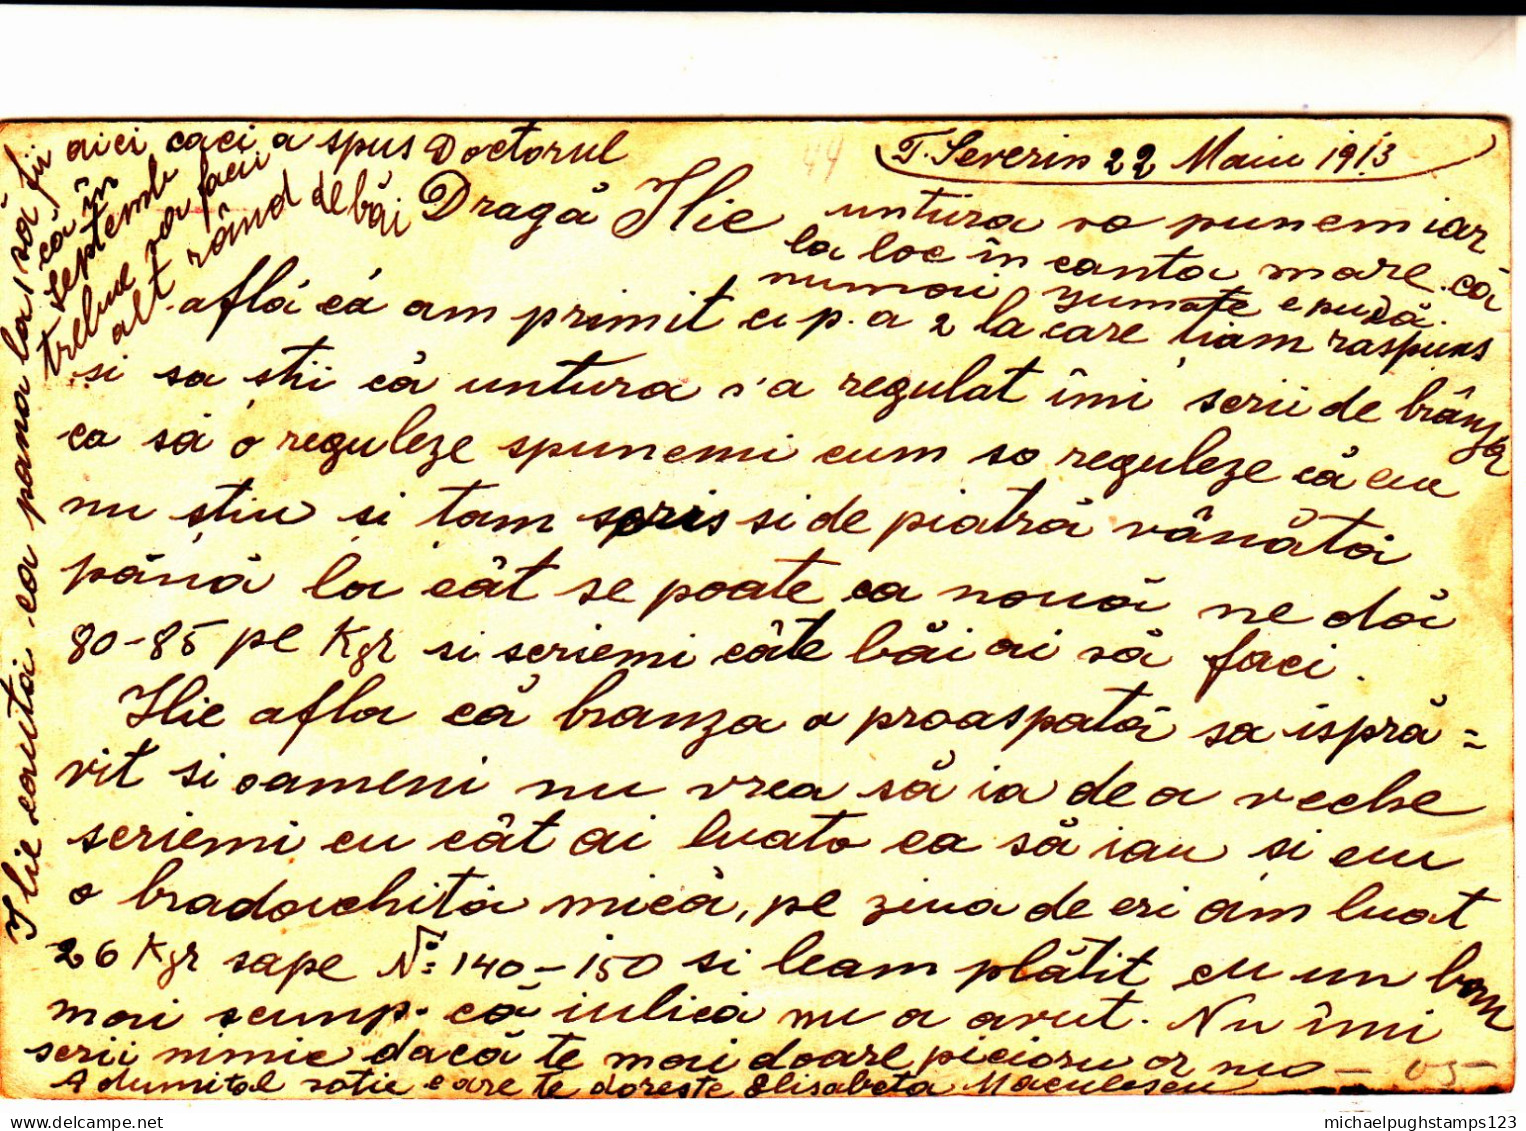 T. Severin 22 Maiu 1913
Dragă Ilie
află că am primit c. p. a 2 la care tiam raspuns
si sa stii că untura s'a regulat îmi scrii de brânza
ca să o reguleze spunemi cum so reguleze că eu
nu știu si tam scris si de piatră vânătă
până la cât se poate ca nouă ne dă
80-85 pe Kgr si scriemi câte băi ai să faci.
Ilie afla că branza a proaspată sa ispră=
vit si oameni nu vrea să ia de a veche
scriemi cu cât ai luato ca să iau si eu
o bradoichita mică, pe ziua de eri am luat
26 Kgr sape No: 140-150 si leam plătit cu un ban
mai scump. că iulica nu a avut. Nu îmi
scrii nimic dacă te mai doare picioru or nu
A dumital sotie care te doreste Elisabeta Maculescu
untura vo punem iar
la loc în canta mare. că
numai zumate e pusă.
Ilie cauta ca pana la 1 să fii
aici caci a spus Doctorul
că în
septemb
trebue va faci
alt rând de băi
44
05-
michaelpughstamps123